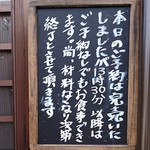 本日のご予約は完売いた
しましたが13時30分以降は
ご予約なしでもお食事でき
ます。尚、材料なくなり次第
終了とさせて頂きます